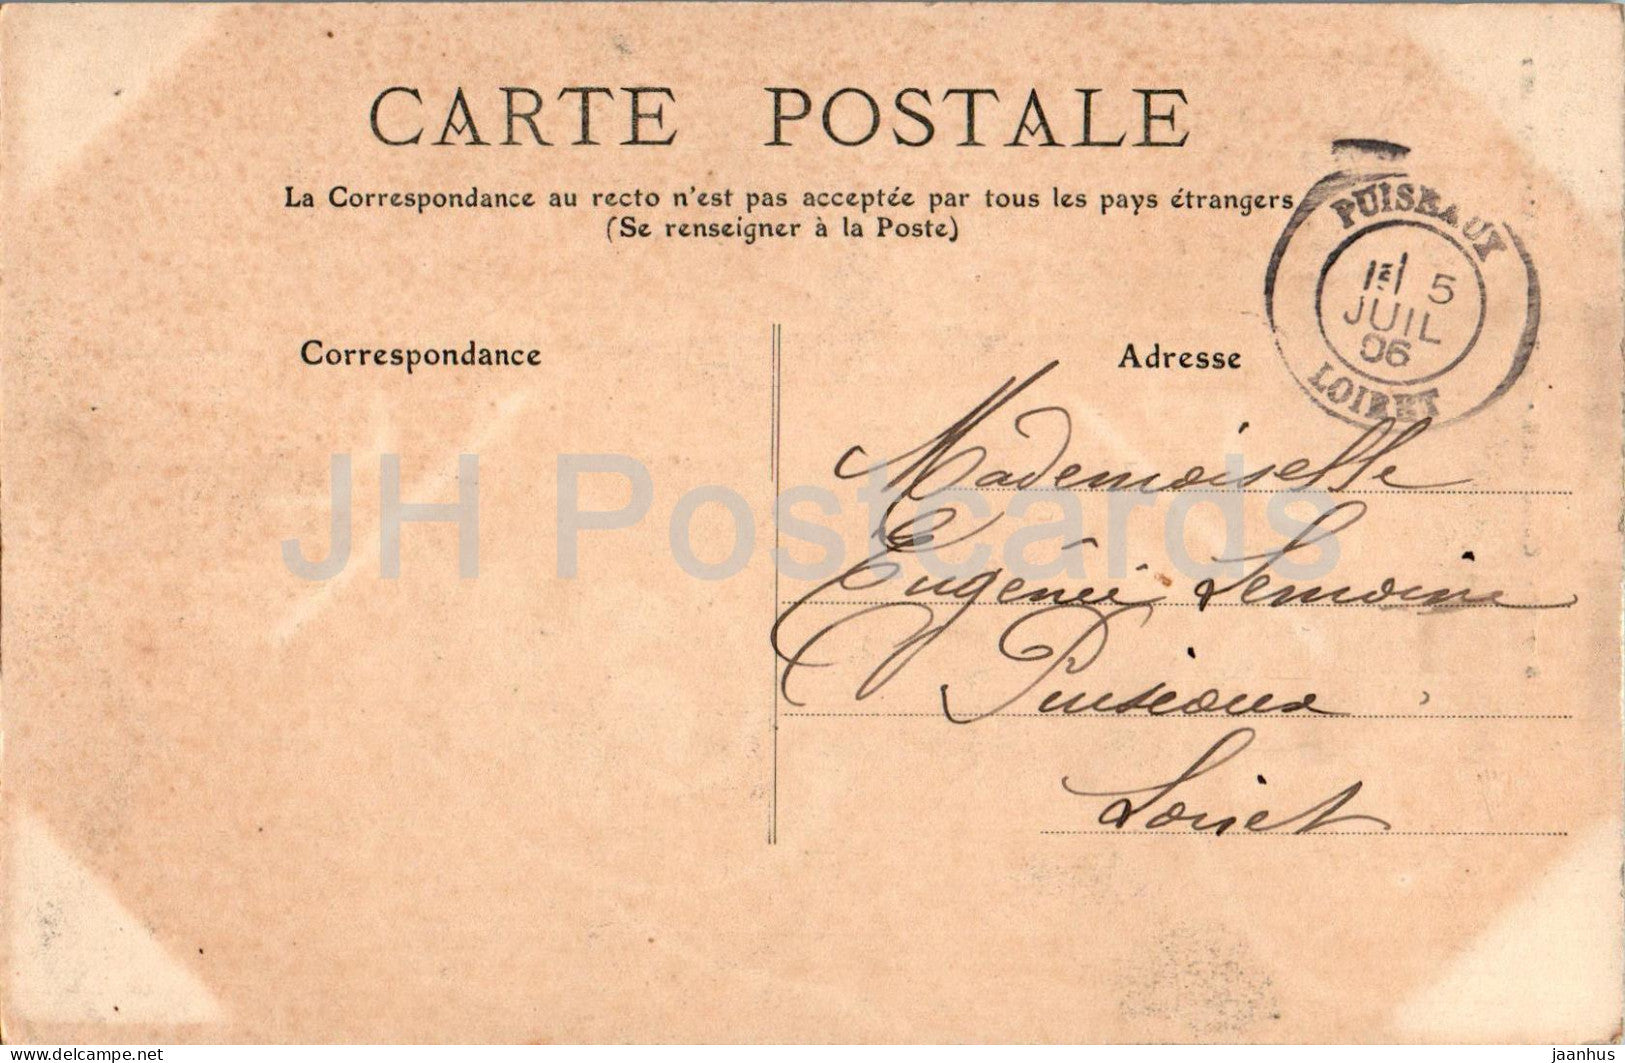 CARTE POSTALE
La Correspondance au recto n'est pas acceptée par tous les pays étrangers
(Se renseigner à la Poste)
PUISEAUX
5
JUIL
06
LOIRET
Correspondance
Adresse
Mademoiselle
Eugénie Lemoine
Puiseaux
Loiret
JH Postcards
www.delcampe.net
jaanhus